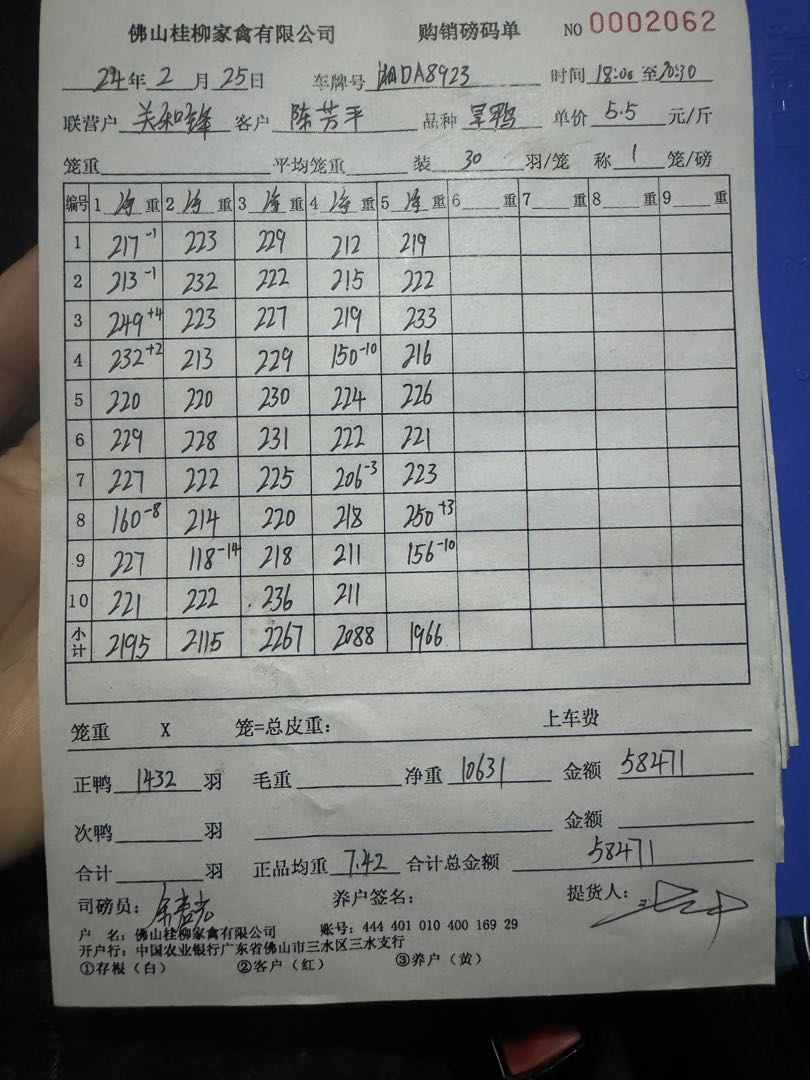 佛山桂柳家禽有限公司 购销磅码单 NO 0002062
24年2月25日 车牌号 DA8923 时间18:00至20:30
联营户 关和锋 客户 陈芳平 品种 旱鸭 单价 5.5 元/斤
笼重 平均笼重 装 30 羽/笼 称 1 笼/磅
编号 1 净 重 2 净 重 3 净 重 4 净 重 5 净 重 6 重 7 重 8 重 9 重
1 217-1 223 229 212 219
2 213-1 232 222 215 222
3 249+4 223 227 219 233
4 232+2 213 229 150-10 216
5 220 220 230 224 226
6 229 228 231 222 221
7 227 222 225 206-3 223
8 160-8 214 220 218 250+3
9 227 118-14 218 211 156-10
10 221 222 236 211
小计 2195 2115 2267 2088 1966
笼重 X 笼=总皮重: 上车费
正鸭 1432 羽 毛重 净重 10631 金额 58471
次鸭 羽 金额
合计 羽 正品均重 7.42 合计总金额 58471
司磅员: 养户签名: 提货人:
户 名: 佛山桂柳家禽有限公司 账号: 444 401 010 400 169 29
开户行: 中国农业银行广东省佛山市三水区三水支行
①存根(白) ②客户(红) ③养户(黄)